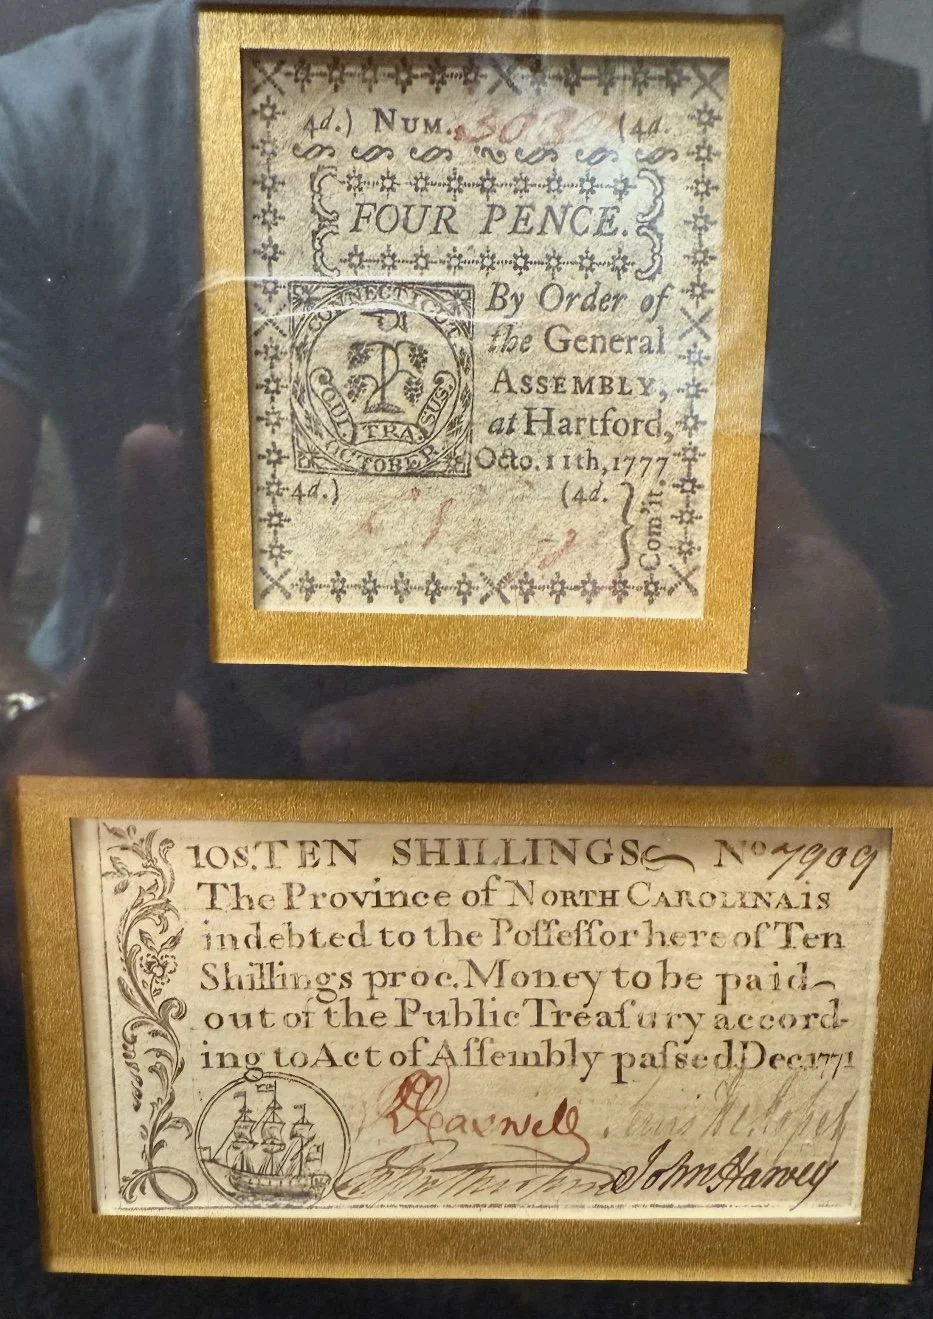 4d.) NUM. (4d.
FOUR PENCE.
CONNECTICUT
QUI. TRA. SUS.
OCTOBER
By Order of
the General
ASSEMBLY,
at Hartford,
Octo. 11th, 1777
4d.) (4d.
Com'tt.
10S. TEN SHILLINGS No 7909
The Province of NORTH CAROLINA is
indebted to the Poſſeſſor hereof Ten
Shillings proc. Money to be paid
out of the Public Treaſury accord-
ing to Act of Aſſembly paſsed Dec. 1771
John Harvey